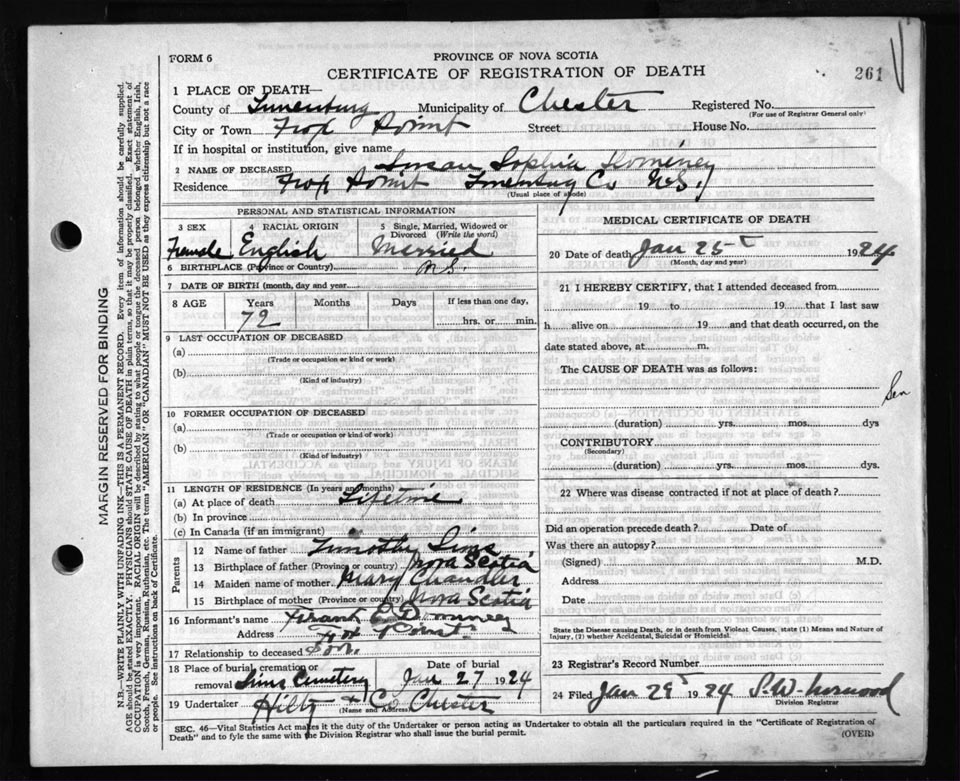 FORM 6
PROVINCE OF NOVA SCOTIA
CERTIFICATE OF REGISTRATION OF DEATH
261
1 PLACE OF DEATH—
County of Lunenburg Municipality of Chester Registered No.
(For use of Registrar General only)
City or Town Street House No.
If in hospital or institution, give name
2 NAME OF DECEASED Susan Sophia
Residence Lunenburg Co N.S.
(Usual place of abode)
PERSONAL AND STATISTICAL INFORMATION
3 SEX 4 RACIAL ORIGIN 5 Single, Married, Widowed or Divorced (Write the word)
Female English Married
6 BIRTHPLACE (Province or Country) N.S.
7 DATE OF BIRTH (month, day and year)
8 AGE Years Months Days If less than one day,
72 hrs. or min.
9 LAST OCCUPATION OF DECEASED
(a)
(Trade or occupation or kind or work)
(b)
(Kind of industry)
10 FORMER OCCUPATION OF DECEASED
(a)
(Trade or occupation or kind or work)
(b)
(Kind of industry)
11 LENGTH OF RESIDENCE (In years and months)
(a) At place of death Lifetime
(b) In province
(c) In Canada (if an immigrant)
Parents
12 Name of father Timothy Sims
13 Birthplace of father (Province or country) Nova Scotia
14 Maiden name of mother Mary Chandler
15 Birthplace of mother (Province or country) Nova Scotia
16 Informant's name Frank
Address Point
17 Relationship to deceased Son.
18 Place of burial, cremation or removal Sims Cemetery Date of burial Jan 27 1924
19 Undertaker Hiltz & Co Chester
(Name and Address)
MEDICAL CERTIFICATE OF DEATH
20 Date of death Jan 25 1924
(Month, day and year)
21 I HEREBY CERTIFY, that I attended deceased from
19 to 19 that I last saw
h alive on 19 and that death occurred, on the
date stated above, at m.
The CAUSE OF DEATH was as follows:
Sen
(duration) yrs. mos. dys
CONTRIBUTORY
(Secondary)
(duration) yrs. mos. dys.
22 Where was disease contracted if not at place of death?
Did an operation precede death? Date of
Was there an autopsy?
(Signed) M.D.
Address
Date
State the Disease causing Death, or in death from Violent Causes, state (1) Means and Nature of
Injury, (2) whether Accidental, Suicidal or Homicidal.
23 Registrar's Record Number
24 Filed Jan 29 1924 S. W.
Division Registrar
SEC. 46—Vital Statistics Act makes it the duty of the Undertaker or person acting as Undertaker to obtain all the particulars required in the "Certificate of Registration of
Death" and to fyle the same with the Division Registrar who shall issue the burial permit.
(OVER)
MARGIN RESERVED FOR BINDING
N.B.—WRITE PLAINLY WITH UNFADING INK—THIS IS A PERMANENT RECORD. Every item of information should be carefully supplied.
AGE should be stated EXACTLY. PHYSICIANS should STATE CAUSE OF DEATH in plain terms, so that it may be properly classified. Exact statement of
OCCUPATION is very important. RACIAL ORIGIN will be described by stating to what people or tongue the deceased person belonged whether English, Irish,
Scotch, French, German, Russian, Ruthenian, etc. The terms "AMERICAN" OR "CANADIAN" MUST NOT BE USED as they express citizenship but not a race
or people. See instructions on back of Certificate.